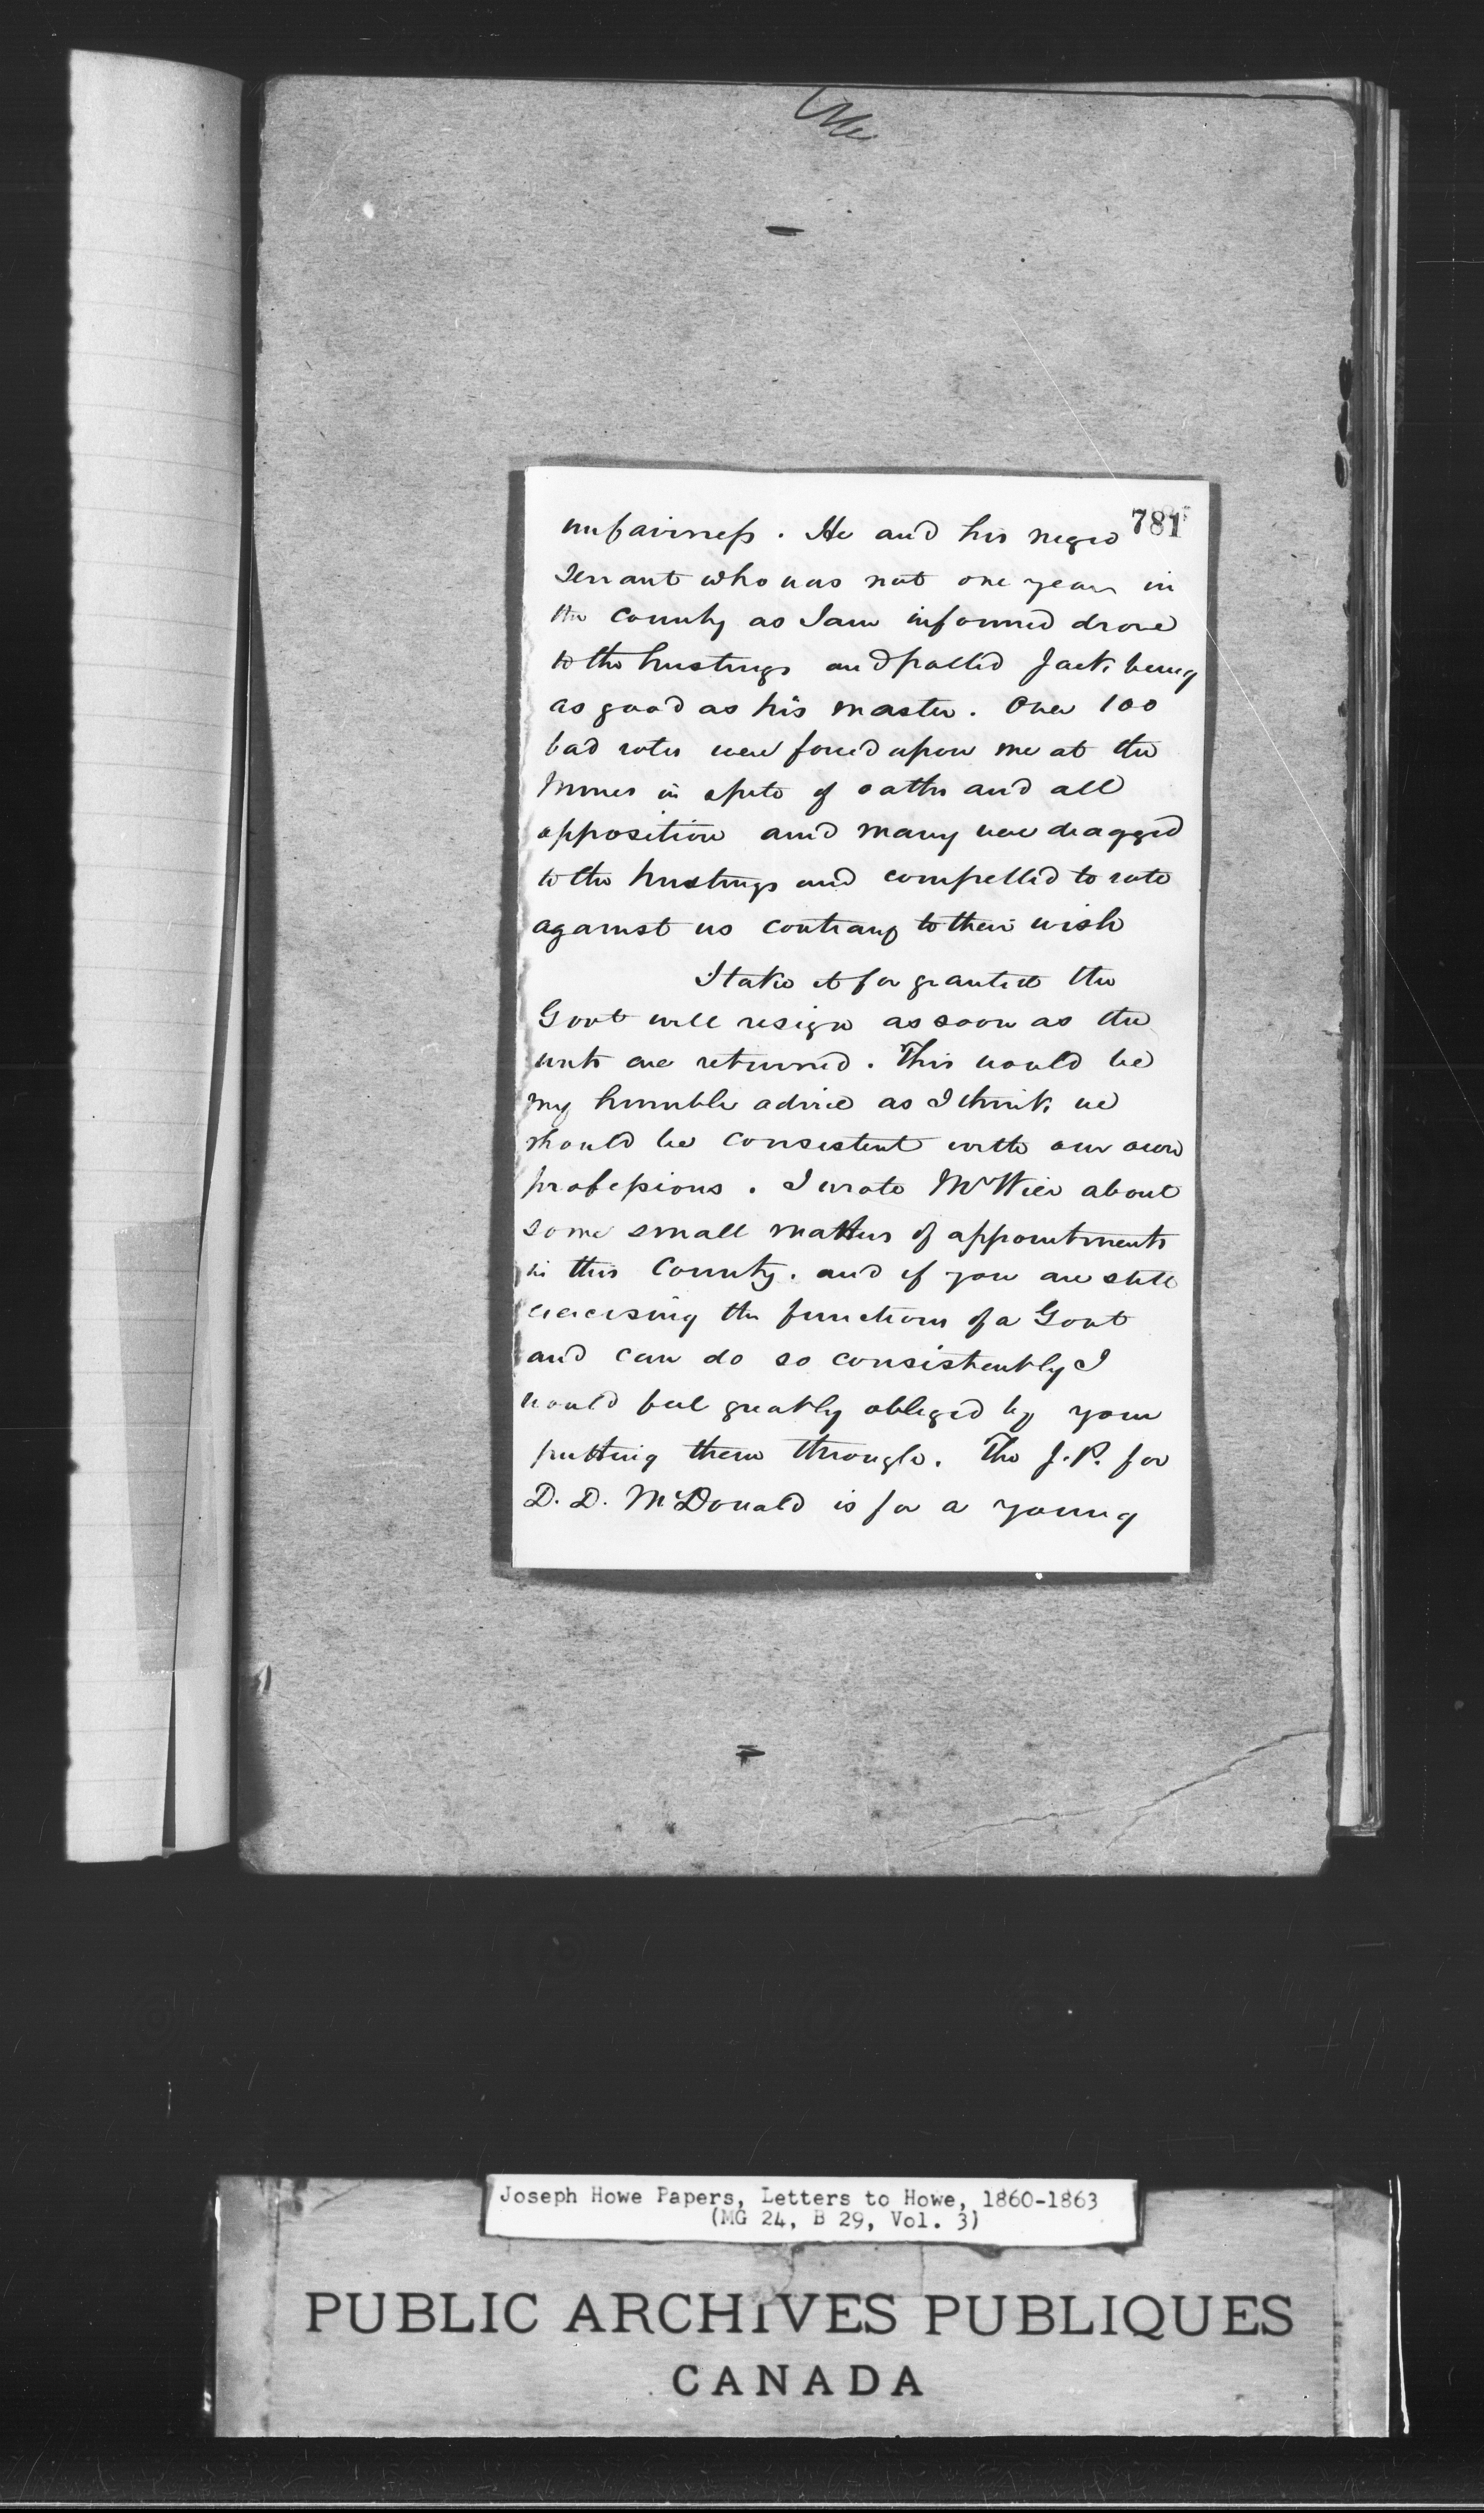 781
unfairness. He and his negro
servant who was not one year in
the County as I am informed drove
to the hustings and polled Jack being
as good as his master. Over 100
bad votes were forced upon me at the
Mines in spite of oaths and all
opposition and many were dragged
to the hustings and compelled to vote
against us contrary to their wish
I take it for granted the
Govt will resign as soon as the
writs are returned. This would be
my humble advice as I think we
should be consistent with our own
professions. I wrote Mr Wier about
some small matters of appointments
in this County. and if you are still
exercising the functions of a Govt
and can do so consistently I
would feel greatly obliged by your
putting them through. The J.P. for
D. D. McDonald is for a young
Joseph Howe Papers, Letters to Howe, 1860-1863
(MG 24, B 29, Vol. 3)
PUBLIC ARCHIVES PUBLIQUES
CANADA